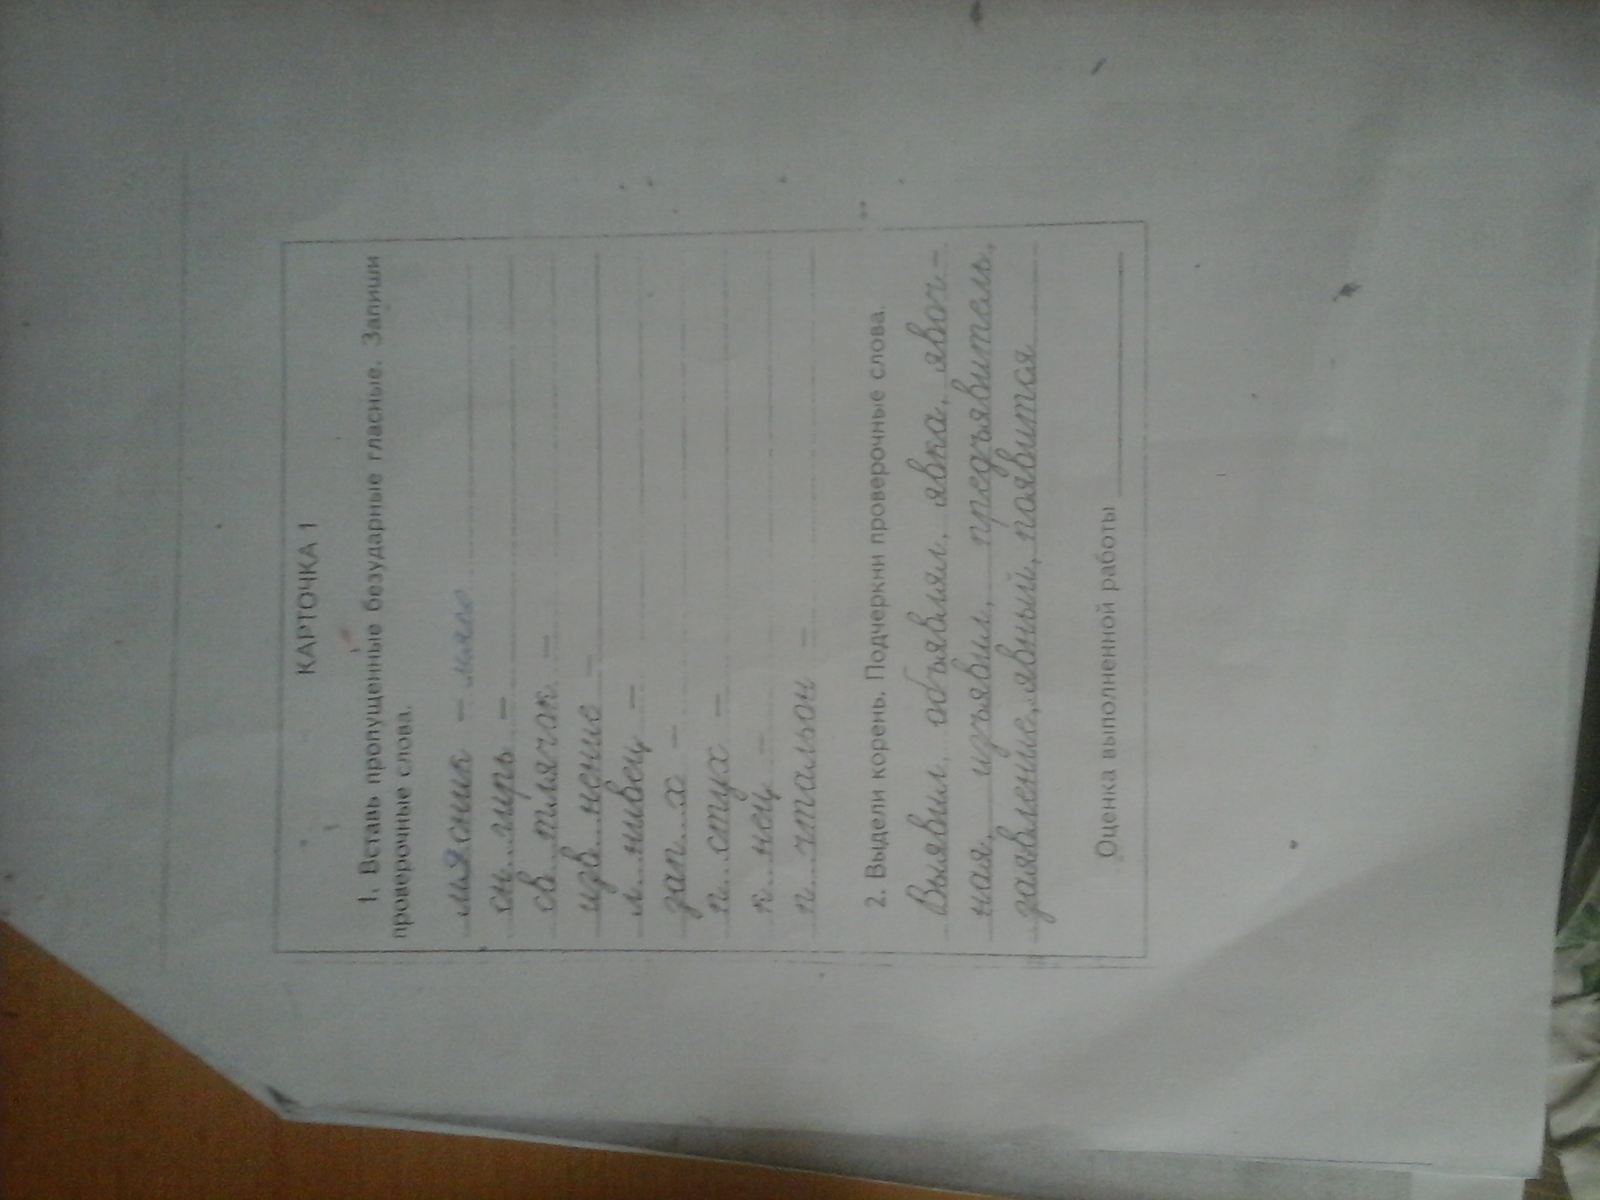 КАРТОЧКА 1
1. Вставь пропущенные безударные гласные. Запиши
проверочные слова.
мясник – мясо
сн...гирь –
св...тлячок –
изв...нение –
л...нивец –
зап...х –
п...стух –
п...нец –
п...чтальон –
2. Выдели корень. Подчеркни проверочные слова.
Выявил, объявлял, явка, явоч-
ная, изъявил, предъявитель,
заявление, явный, появится
Оценка выполненной работы